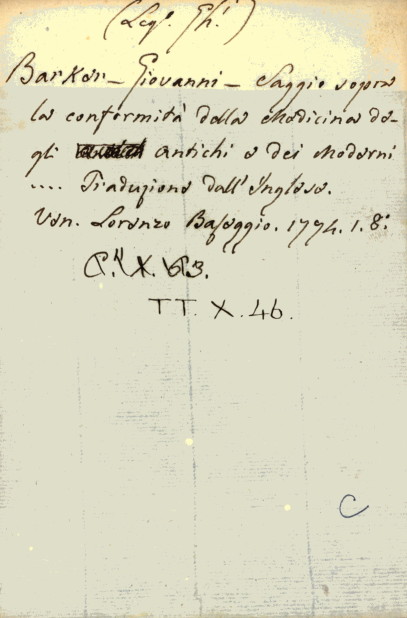 (Leg.º Gh.i)
Barker - Giovanni - Saggio sopra
la conformità della Medicina de-
gli Antichi e dei Moderni
.... Traduzione dall'Inglese.
Ven. Lorenzo Baseggio. 1774. 1. 8.º
X. 63.
TT. X. 46.
C